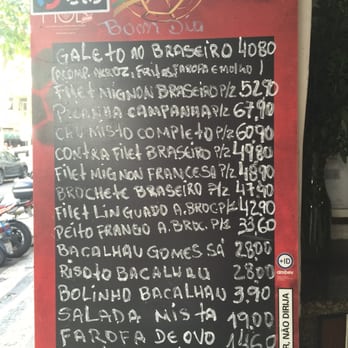 BOM DIA
GALETO NO BRASEIRO 40,80
(ACOMP. ARROZ, FRITAS, FAROFA E MOLHO)
FILET MIGNON BRASEIRO P/2 52,90
PICANHA CAMPANHA P/2 67,90
CHU MISTO COMPLETO P/2 60,90
CONTRA FILET BRASEIRO P/2 49,80
FILET MIGNON FRANCESA P/2 48,90
BROCHETE BRASEIRO P/2 47,90
FILET LINGUADO A. BROC P/2 42,90
PEITO FRANGO A. BROC. P/2 33,60
BACALHAU GOMES SÁ 28,00
RISOTO BACALHAU 28,00
BOLINHO BACALHAU 3,90
SALADA MISTA 19,00
FAROFA DE OVO 14,60
+ID
ambev
R, NÃO DIRIJA